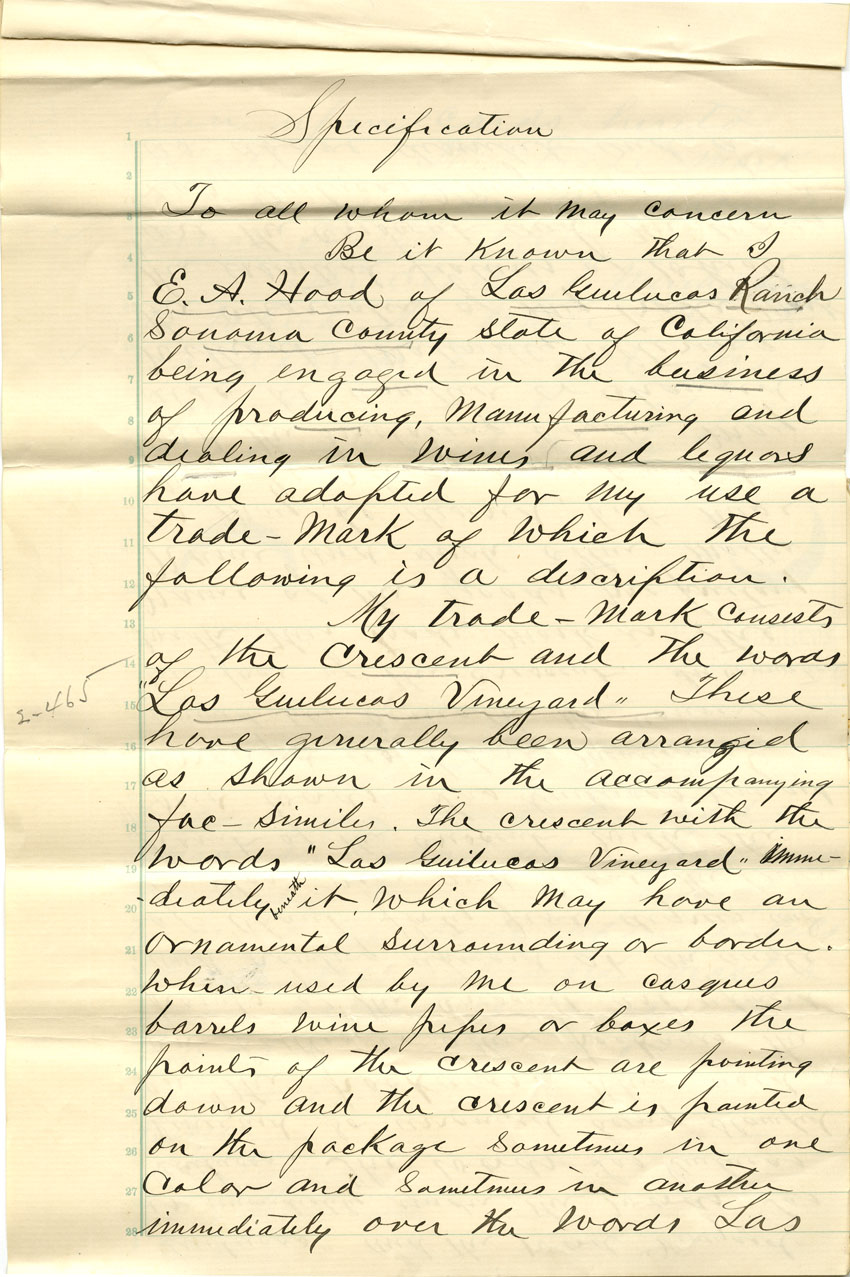 Specification
1
2
3 To all whom it may concern
4 Be it Known that I
5 E. A. Hood of Las Guilucos Ranch
6 Sonoma County State of California
7 being engaged in the business
8 of producing, manufacturing and
9 dealing in wines and liquors
10 have adopted for my use a
11 trade-Mark of which the
12 following is a discription.
13 My trade-Mark consists
14 of the Crescent and the words
2-465
15 "Las Guilucos Vineyard" These
16 have generally been arranged
17 as shown in the accompanying
18 fac-similes. The crescent with the
19 words "Las Guilucos Vineyard" imme-
20 -diately beneath it, which may have an
21 ornamental surrounding or border.
22 when used by me on casques
23 barrels wine pipes or boxes the
24 points of the crescent are pointing
25 down and the crescent is painted
26 on the package sometimes in one
27 Color and sometimes in another
28 immediately over the words Las